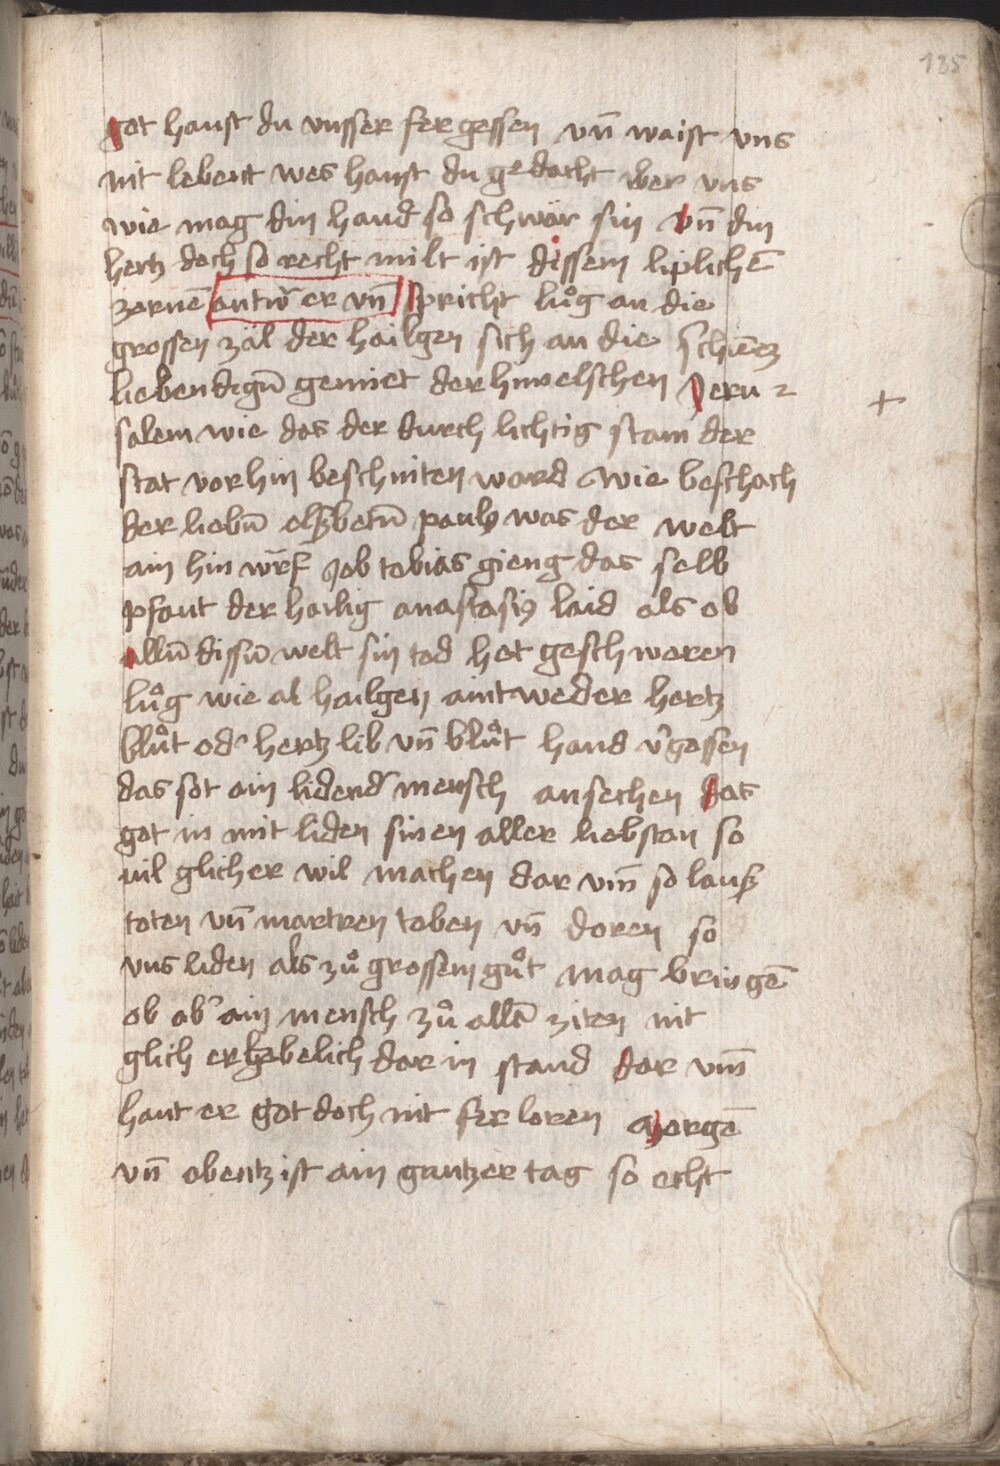 135
got hanst du vnsser fergessen vn̄ waist vns
nit lebent wes hanst du gedacht vber vns
wie mag din hand so schwär sin vn̄ din
hertz doch so recht milt ist dissem liplichē
zornē antwͬ er vn̄ spricht luͦg an die
grossen zäl der hailgen sich an die schēntz
liebendigū gemiet der himelschen Jeru
salem wie das der durch lichtig stam der
stat vorhin beschniten ward wie beschach
der liebū elsʒbetū paulꝯ was der welt
ain hin wr̄f Job tobias gieng das selb
pfant der hailig anastasiꝯ laid als ob
allū dissū welt sin tod het geschworen
luͦg wie al hailgen aintweder hertz
bluͦt odˀ hertz lib vn̄ bluͦt hand vˀgossen
das sot ain lidendˀ mensch ansechen das
got in mit liden sinen aller liebstan so
uil glicher wil machen dar vm̄ so lausʒ
toten vn̄ martren toben vn̄ doren so
vns liden als zuͦ grossem guͦt mag bringē
ob abˀ ain mensch zuͦ allē ziten nit
glich erhebelich dar in stand dar vm̄
hant er got doch nit ferloren Morgē
vn̄ obentz ist ain gantzer tag so echt